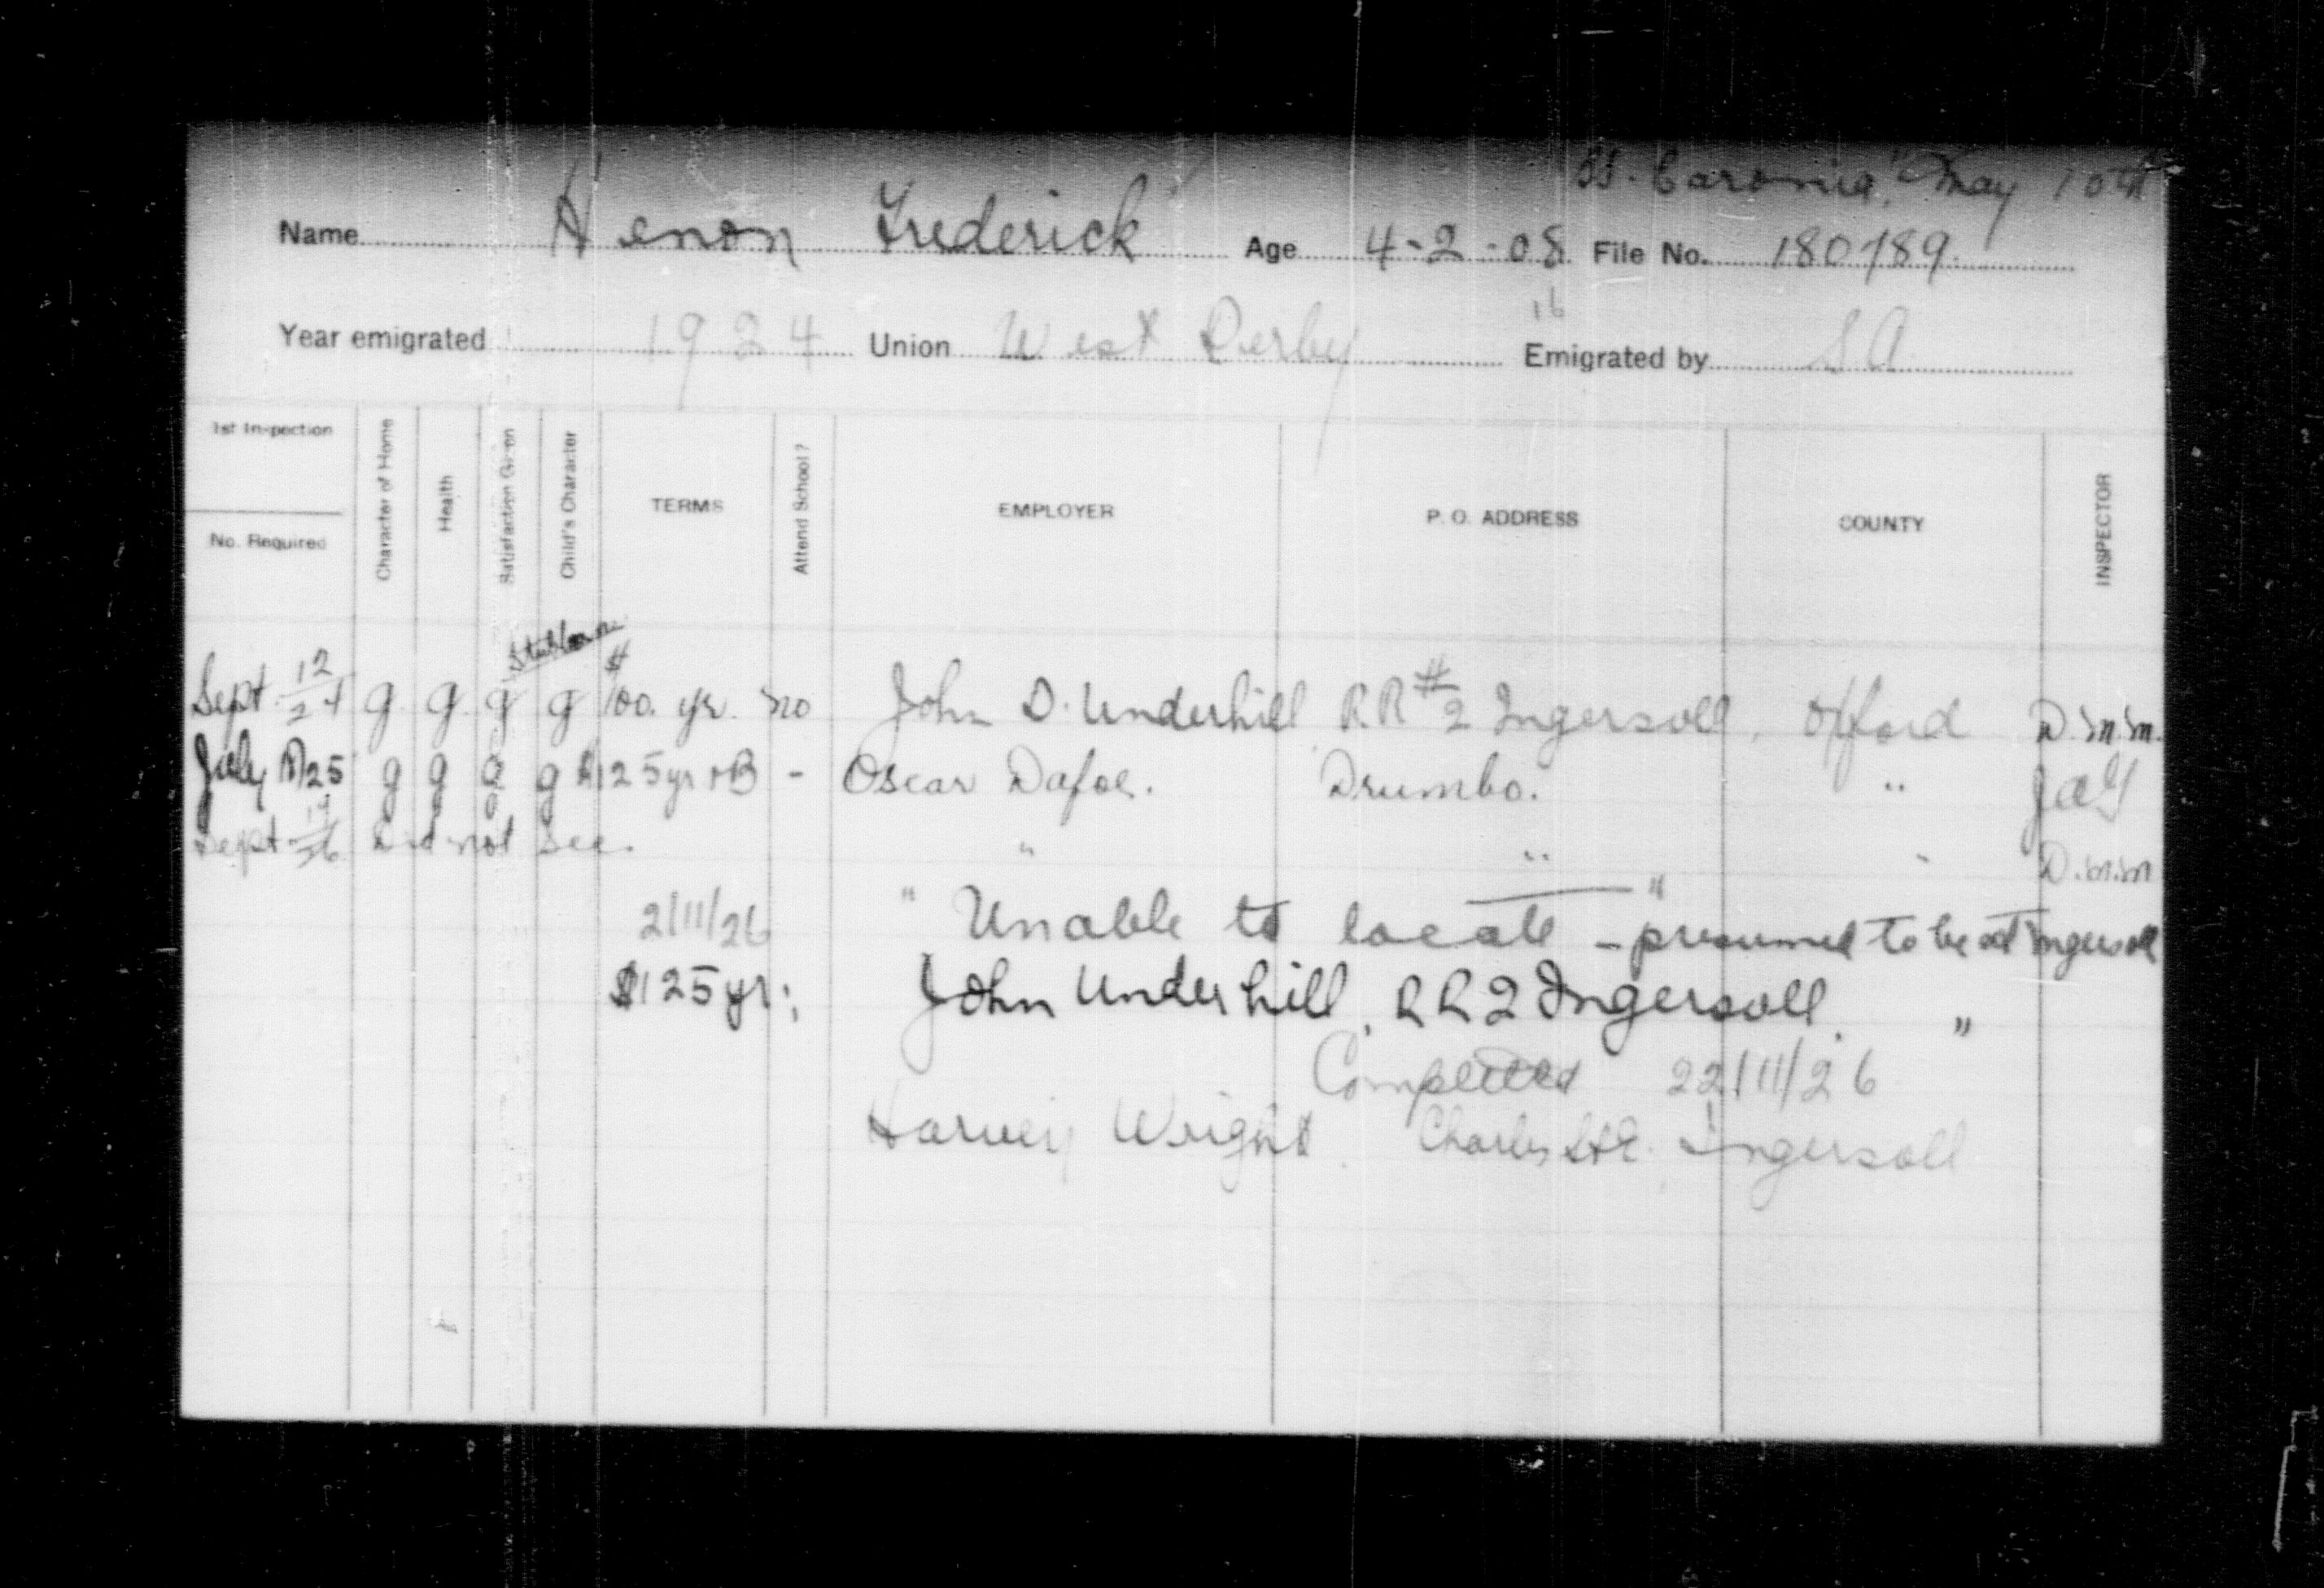 SS. Caronia, "May 10th
Name Henon Frederick Age 4-2-08 File No. 180789
16
Year emigrated 1924 Union West Derby Emigrated by S A
1st Inspection
No. Required
Character of Home
Health
Satisfaction Given
Child's Character
TERMS
Attend School?
EMPLOYER
P. O. ADDRESS
COUNTY
INSPECTOR
Stubborn
Sept 12/24 g. g. g g $100. yr. no John D. Underhill R.R #2 Ingersoll, Oxford D.M.M.
July 25 g g g g $125 yr + B - Oscar Dafoe. Drumbo. " JAG
Sept 26 Did not see. " " " D.M.M
2/11/26 " Unable to locate " - presumed to be at Ingersoll
$125 yr: John Underhill, R R 2 Ingersoll. "
Completed 22/11/26
Harvey Wright. Charles St E. Ingersoll